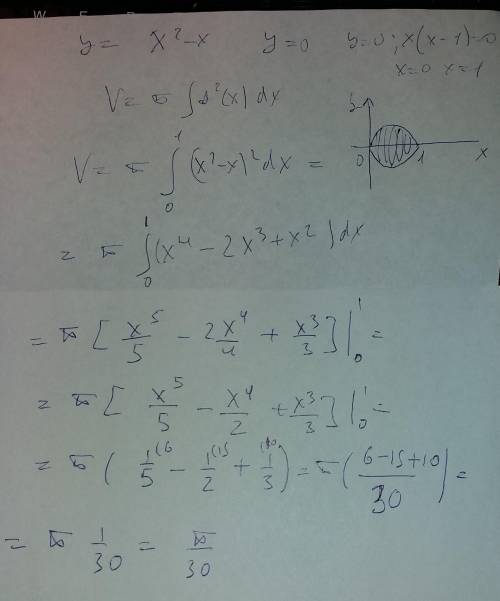 y = x² - x y = 0 y = 0; x(x-1) = 0
x = 0 x = 1
V = π ∫ f²(x) dx
y
0 1 x
V = π ∫₀¹ (x² - x)² dx =
= π ∫₀¹ (x⁴ - 2x³ + x²) dx
= π [ x⁵/5 - 2x⁴/4 + x³/3 ] |₀¹ =
= π [ x⁵/5 - x⁴/2 + x³/3 ] |₀¹ =
= π ( 1/5 ⁽⁶ - 1/2 ⁽¹⁵ + 1/3 ⁽¹⁰ ) = π ( 6-15+10 / 30 ) =
= π 1/30 = π/30